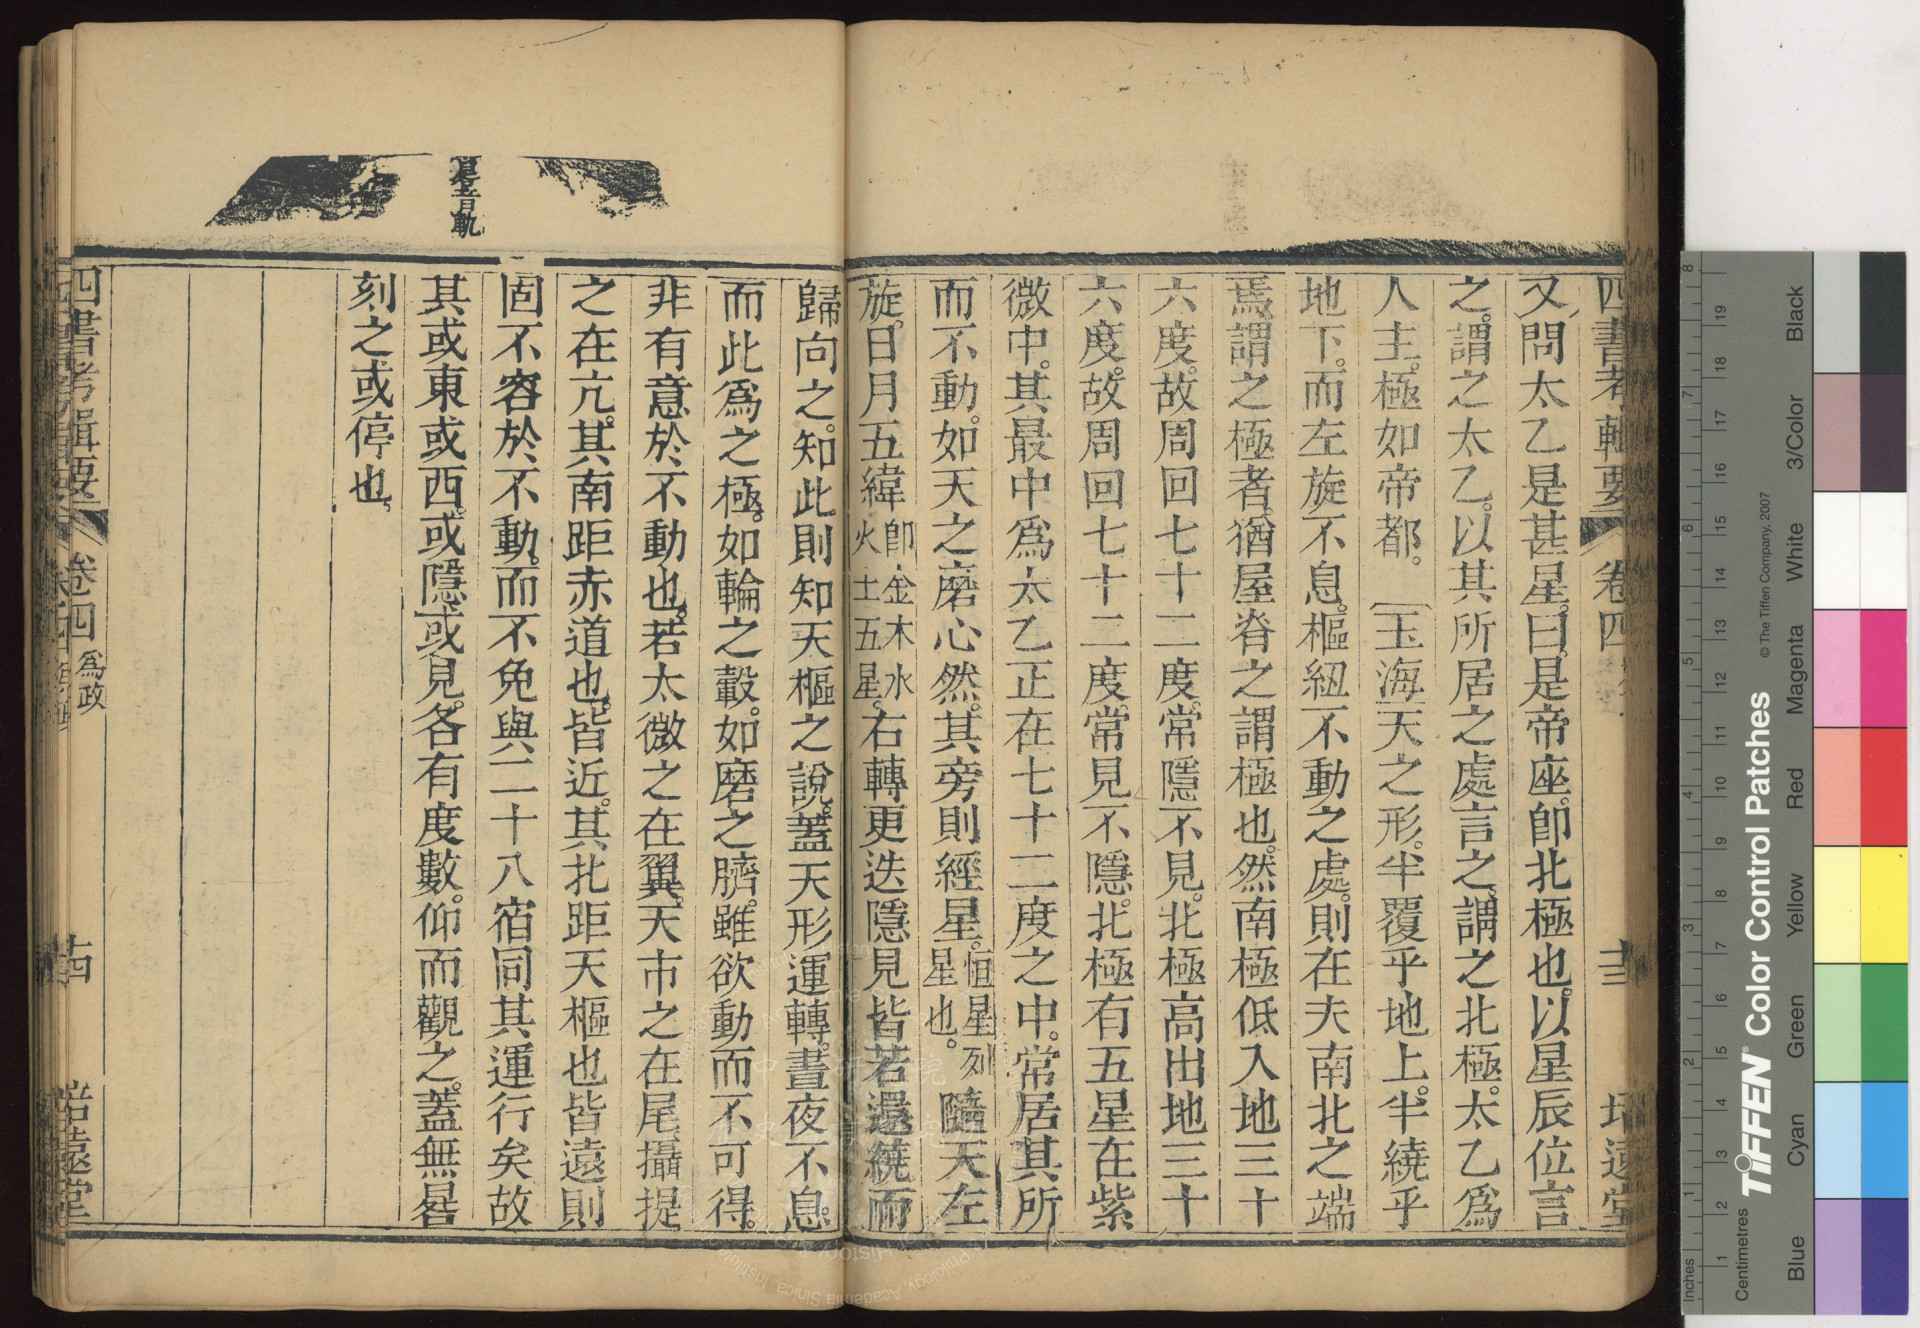 四書考輯要 卷四 培遠堂
又問太乙是甚星曰是帝座卽北極也以星辰位言
之謂之太乙以其所居之處言之謂之北極太乙爲
人主極如帝都。〔玉海〕天之形半覆乎地上半繞乎
地下而左旋不息樞紐不動之處則在夫南北之端
焉謂之極者猶屋脊之謂極也然南極低入地三十
六度故周回七十二度常隱不見北極高出地三十
六度故周回七十二度常見不隱北極有五星在紫
微中其最中爲太乙正在七十二度之中常居其所
而不動如天之磨心然其旁則經星恒星列星也。隨天左
旋日月五緯卽金木水火土五星右轉更迭隱見皆若還繞而
歸向之知此則知天樞之說蓋天形運轉晝夜不息
而此爲之極如輪之轂如磨之臍雖欲動而不可得
非有意於不動也若太微之在翼天市之在尾攝提
之在亢其南距赤道也皆近其北距天樞也皆遠則
固不容於不動而不免與二十八宿同其運行矣故
其或東或西或隱或見各有度數仰而觀之蓋無晷
刻之或停也
四書考輯要 卷四 爲政 十四 培遠堂
Inches
Centimetres
TIFFEN® Color Control Patches
© The Tiffen Company, 2007
Blue
Cyan
Green
Yellow
Red
Magenta
White
3/Color
Black